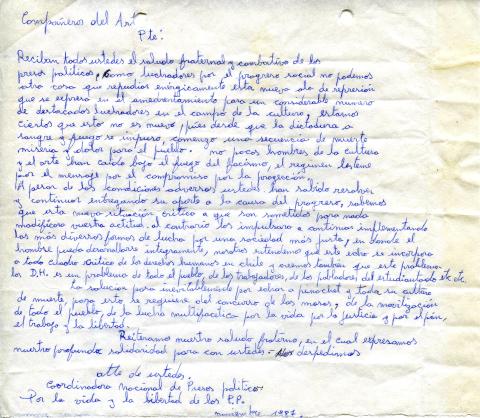 Compañeros del Art
Pte:
Reciban todos ustedes el saludo fraternal y combativo de los
presos políticos, como luchadores por el progreso social no podemos
otra cosa que repudiar enérgicamente esta nueva ola de represión
que se expresa en el amedrentamiento para un considerable numero
de destacados luchadores en el campo de la cultura, estamos
ciertos que esto no es nuevo, pues desde que la dictadura a
sangre y fuego se impuso, comenzo una secuencia de muerte
miseria y dolor para el pueblo. no pocos hombres de la cultura
y el arte han caido bajo el fuego del facismo, el regimen les teme
por el mensaje por el compromiso por la proyección.
A pesar de las condiciones adversas ustedes han sabido resolver
y continuar entregando su aporte a la causa del progreso, sabemos
que esta nueva situación critica a que son sometidos para nada
modificara vuestra actitud. al contrario los impulsara a continuar implementando
las más diversas formas de lucha por una sociedad más justa, en donde el
hombre pueda desarrollarse integramente, nosotros entendemos que este echo se incorpora
a todo cuadro critico de los derechos humanos en chile y creemos tambien que este problema
los D.H. es un problema de todo el pueblo, de los trabajadores, de los pobladores del estudiantado etc etc.
La solucion pasa inevitablemente por echar a pinochet y toda su cultura
de muerte, para esto se requiere del concurso de las masas, y de la movilización
de todo el pueblo, de la lucha multifacetica por la vida por la justicia y por el pan,
el trabajo y la libertad.
Reiteramos nuestro saludo fraterno, en el cual expresamos
nuestra profunda solidaridad para con ustedes - Nos despedimos
atte de ustedes.
Coordinadora Nacional de Presos politicos
Por la vida y la libertad de los P.P.
noviembre 1987.